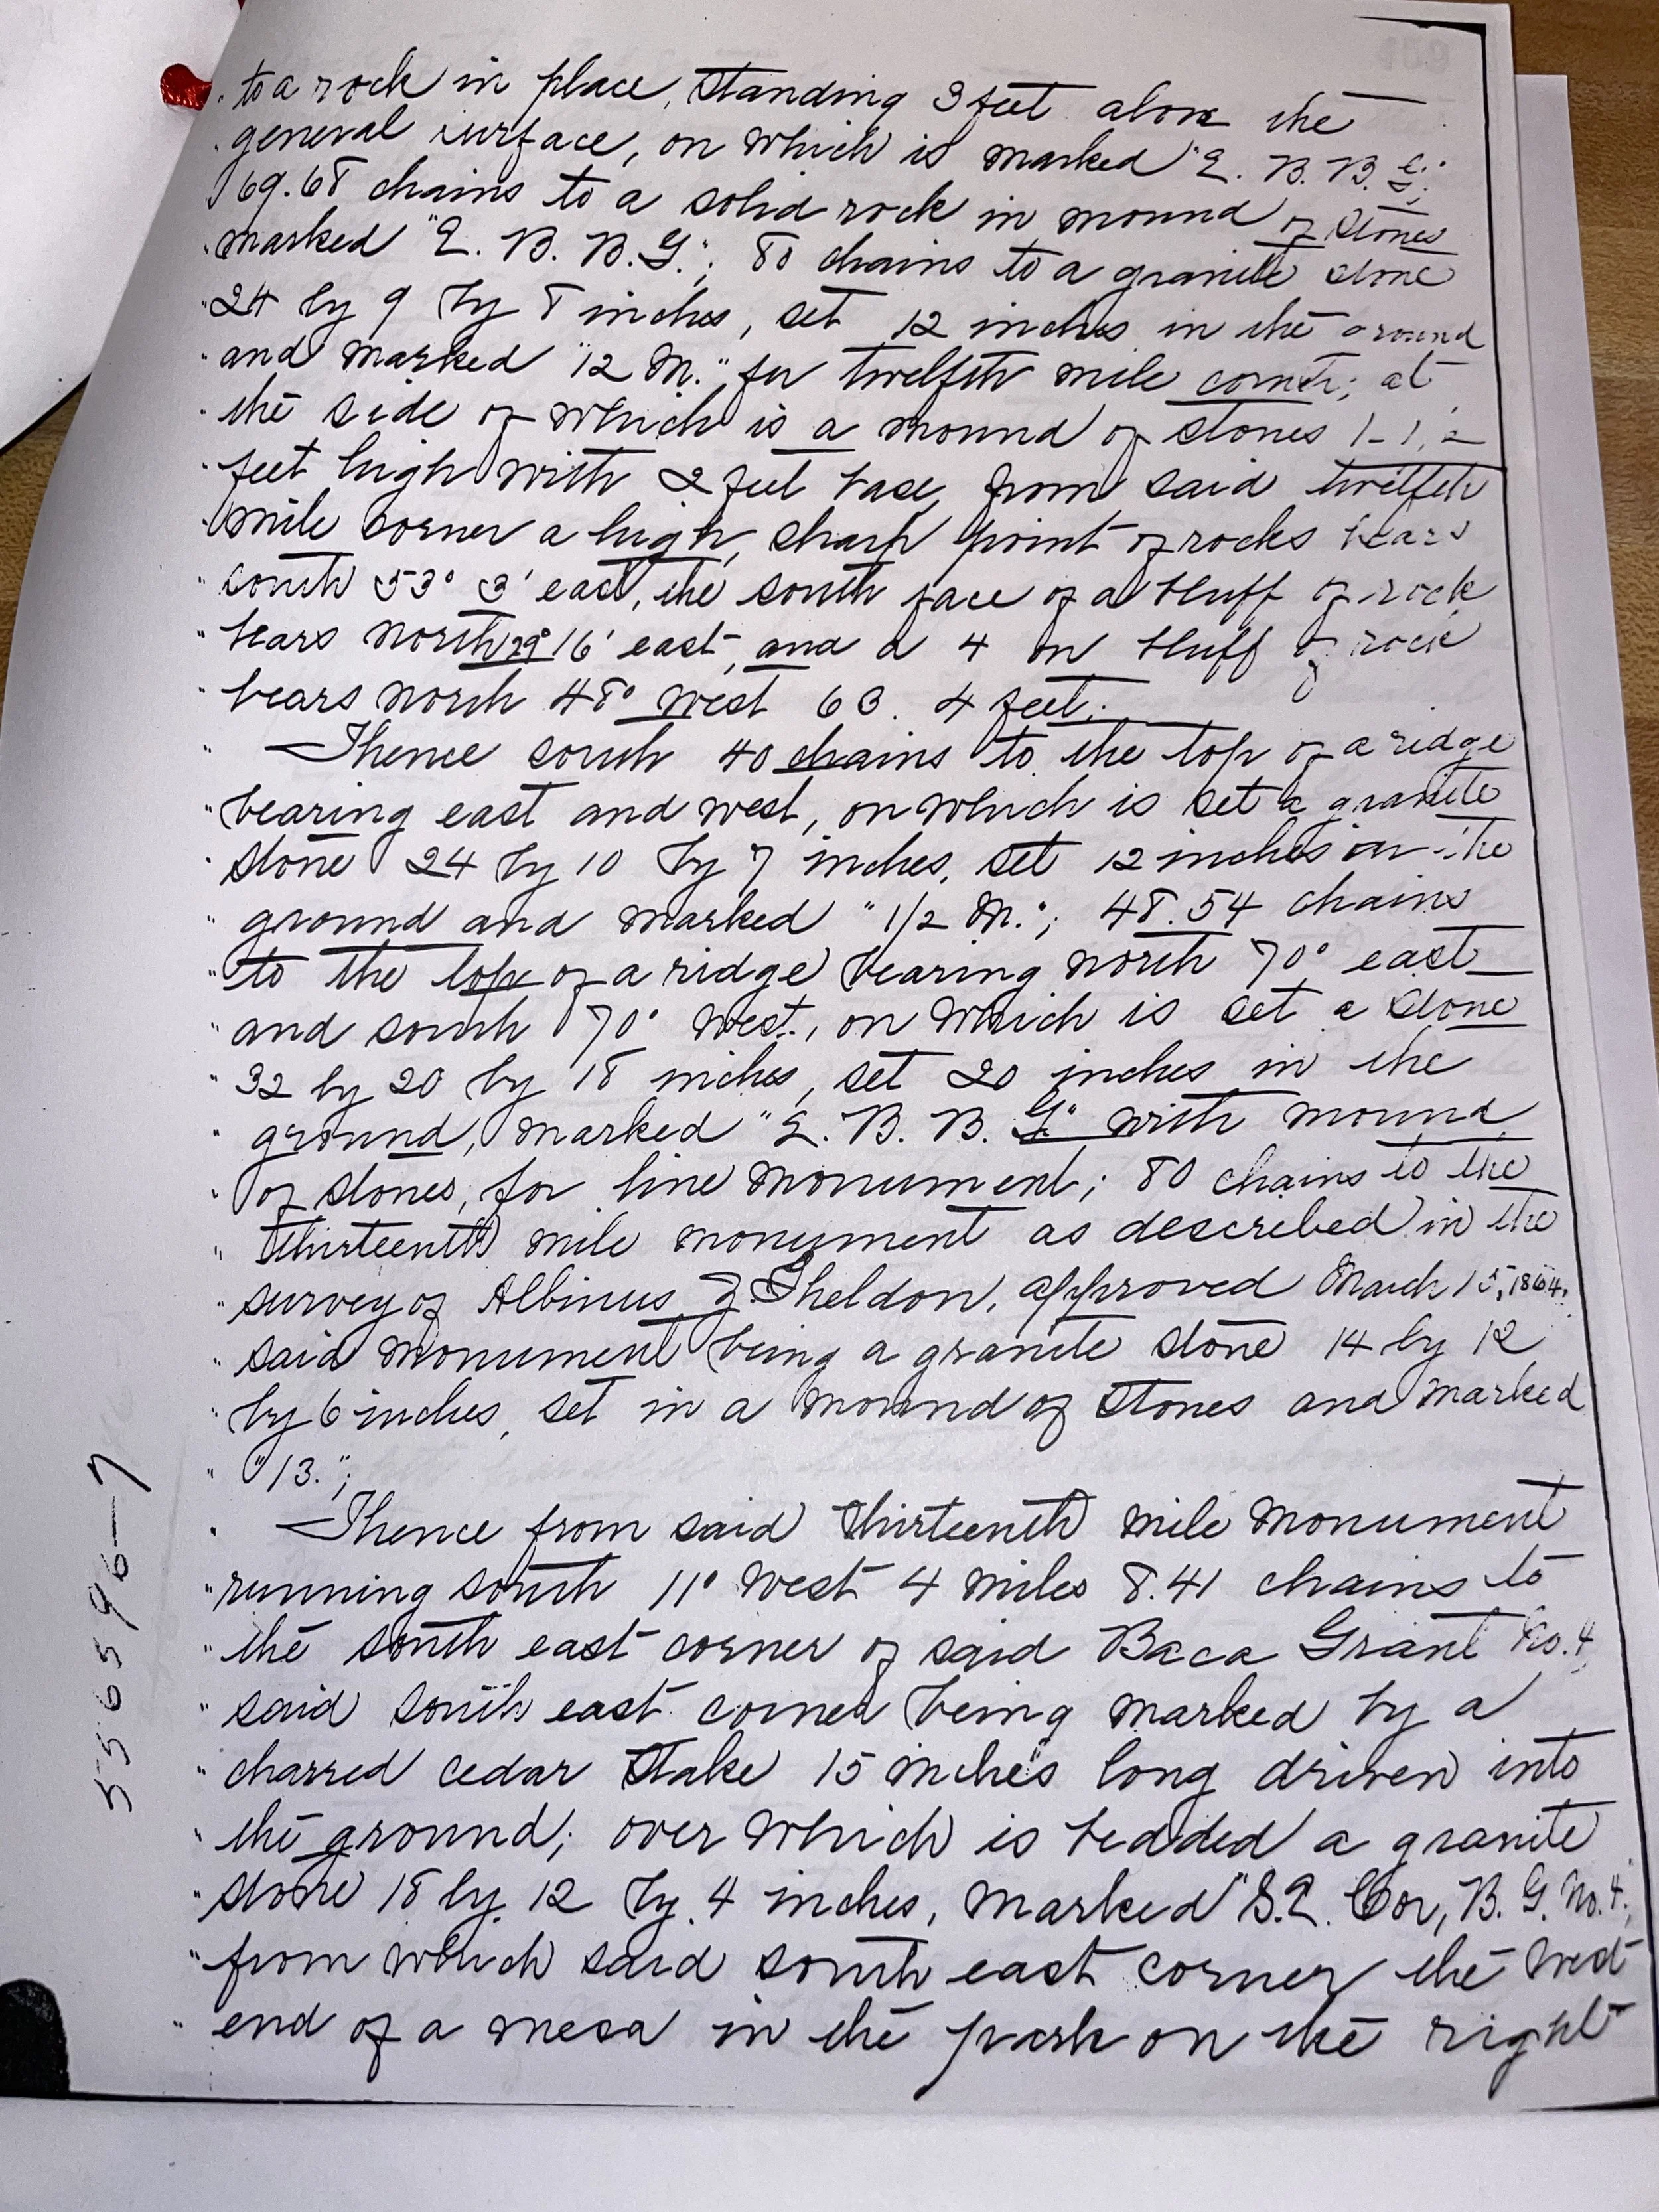 " to a rock in place, standing 3 feet above the
" general surface, on which is marked "E. B. B. G.";
" 69.68 chains to a solid rock in mound of stones
" marked "E. B. B. G."; 80 chains to a granite stone
" 24 by 9 by 8 inches, set 12 inches in the ground
" and marked "12 M." for twelfth mile corner; at
" the side of which is a mound of stones 1-1/2
" feet high with 2 feet base, from said twelfth
" mile corner a high, sharp point of rocks bears
" south 53° 3' east, the south face of a bluff of rock
" bears north 29° 16' east, and a 4 on bluff of rock
" bears north 48° west 63.4 feet.
" Thence south 40 chains to the top of a ridge
" bearing east and west, on which is set a granite
" stone 24 by 10 by 7 inches, set 12 inches in the
" ground and marked "1/2 M."; 48.54 chains
" to the top of a ridge bearing north 70° east
" and south 70° west, on which is set a stone
" 32 by 20 by 18 inches, set 20 inches in the
" ground, marked "E. B. B. G" with mound
" of stones, for line monument; 80 chains to the
" thirteenth mile monument as described in the
" survey of Albinus Z. Sheldon, approved March 15, 1864,
" said monument being a granite stone 14 by 12
" by 6 inches, set in a mound of stones and marked
" "13.";
" Thence from said thirteenth mile monument
" running south 11° west 4 miles 8.41 chains to
" the south east corner of said Baca Grant No. 4
" said south east corner being marked by a
" charred cedar stake 15 inches long driven into
" the ground; over which is bedded a granite
" stone 18 by 12 by 4 inches, marked "S.E. Cor, B. G. No. 4.,
" from which said south east corner the west
" end of a mesa in the park on the right
556596-7